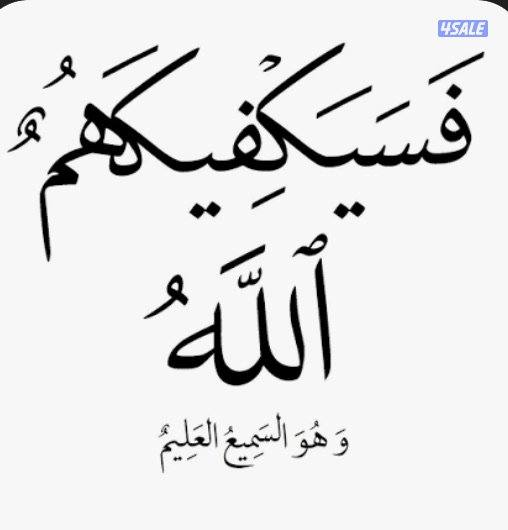 4SALE
فَسَيَكْفِيكَهُمُ
ٱللَّهُ
وَ هُوَ السَمِيعُ العَلِيمُ